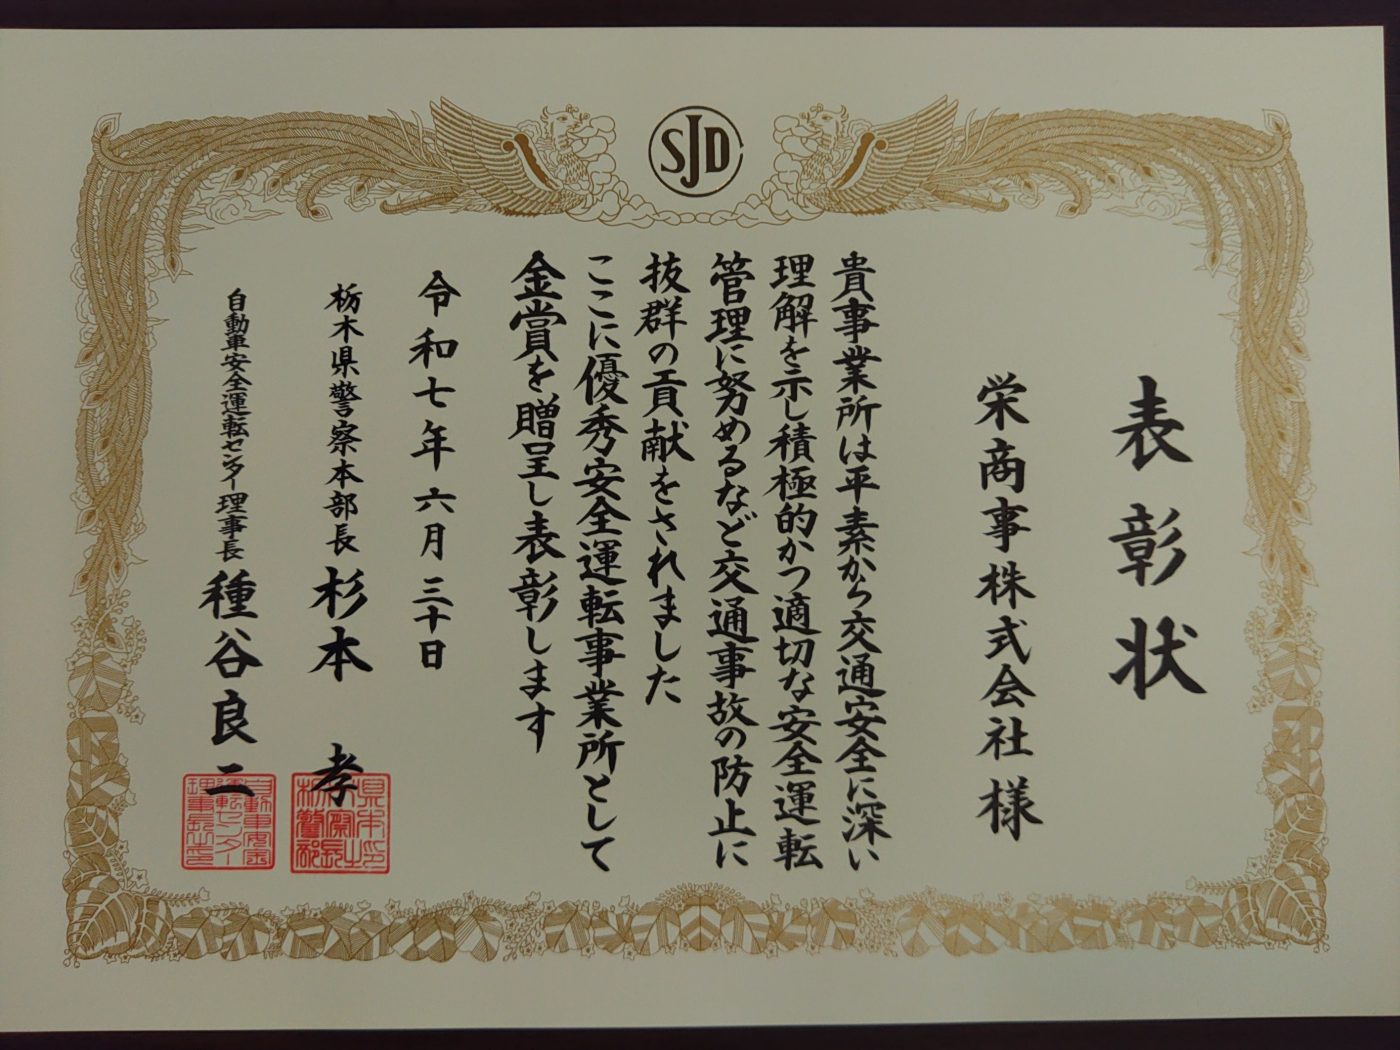 SJD
表彰状
栄商事株式会社様
貴事業所は平素から交通安全に深い
理解を示し積極的かつ適切な安全運転
管理に努めるなど交通事故の防止に
抜群の貢献をされました
ここに優秀安全運転事業所として
金賞を贈呈し表彰します
令和七年六月三十日
栃木県警察本部長 杉本 孝
自動車安全運転センター理事長 種谷良二